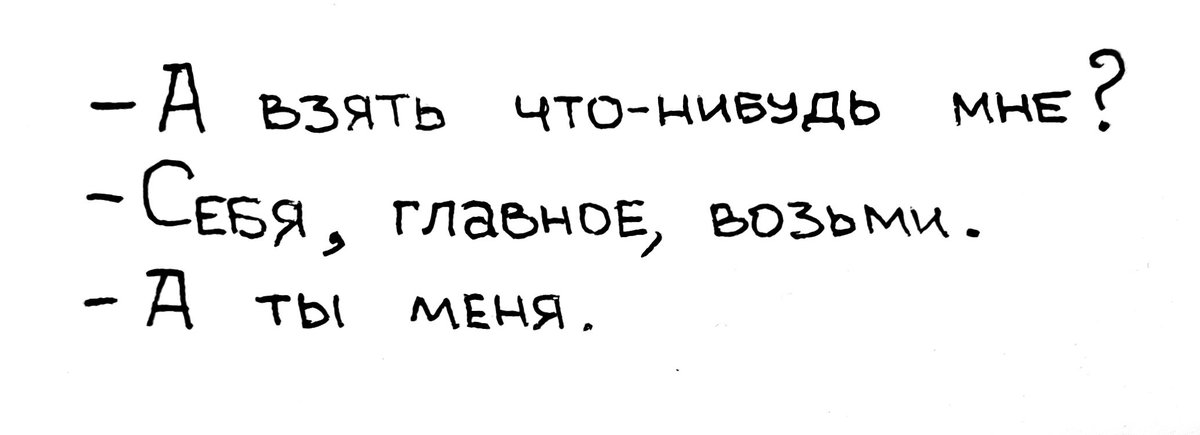 - А взять что-нибудь мне?
- Себя, главное, возьми.
- А ты меня.